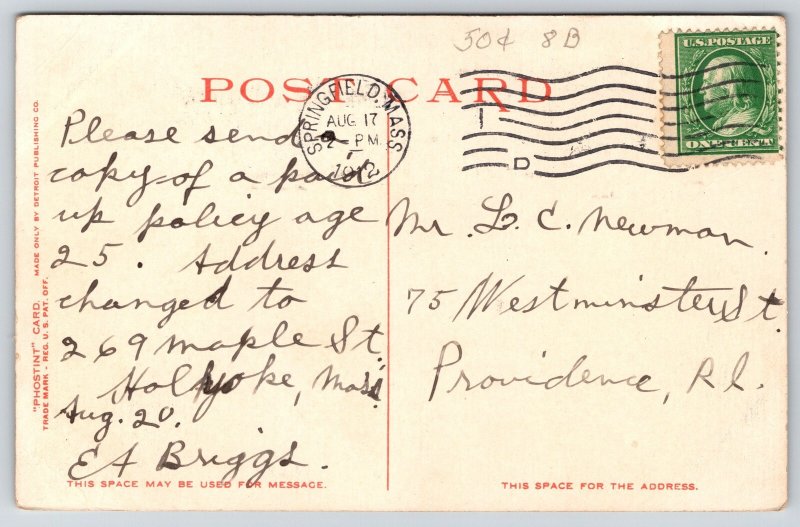 50¢ 8B
POST CARD
U.S. POSTAGE
ONE CENT
SPRINGFIELD, MASS.
AUG 17
2 - PM
1912
D
Please send a
copy of a paid
up policy age
25. Address
changed to
269 maple St.
Holyoke, Mass.
Aug. 20.
EA Briggs.
Mr. L. C. Newman.
75 Westminster St.
Providence, R.I.
"PHOSTINT" CARD. MADE ONLY BY DETROIT PUBLISHING CO.
TRADE MARK - REG. U. S. PAT. OFF.
THIS SPACE MAY BE USED FOR MESSAGE.
THIS SPACE FOR THE ADDRESS.